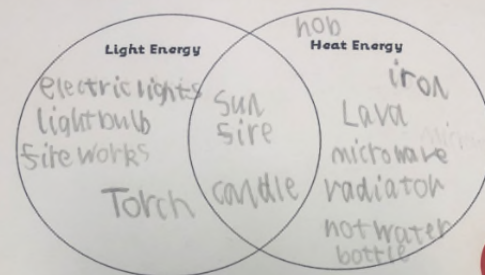 Light Energy
electric lights
lightbulb
fire works
Torch
sun
fire
candle
hob
Heat Energy
iron
Lava
microwave
radiator
hot water
bottle